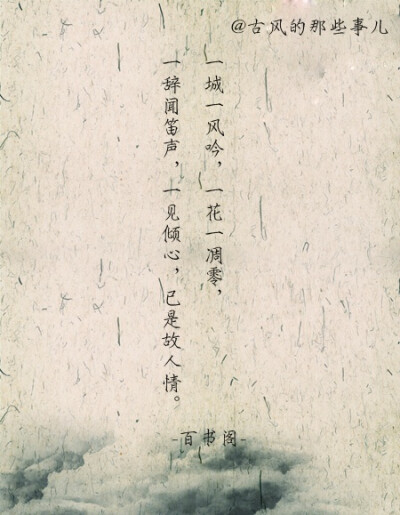 @古风的那些事儿
一城一风吟，一花一凋零，
一辞闻笛声，一见倾心，已是故人情。
-百书阁-